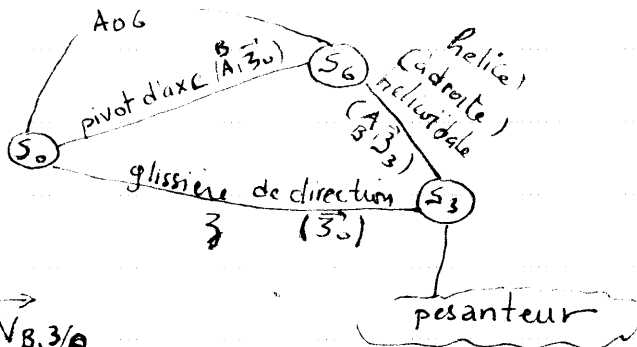 A06
S0
pivot d'axe (A, z⃗0)
B
S6
hélice
(à droite)
hélicoïdale
(A, z⃗3)
B
glissière de direction
z (z⃗0)
S3
pesanteur
V B,3/0